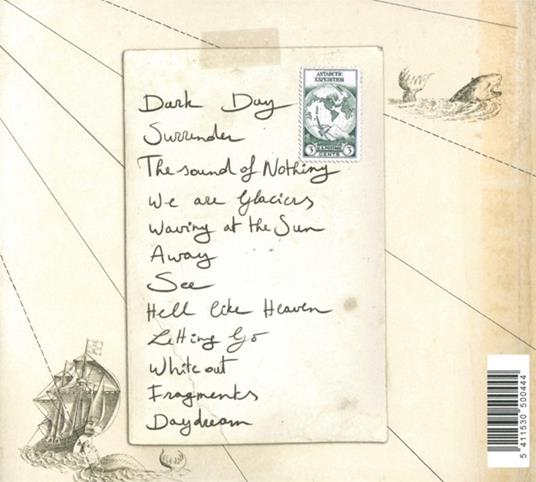 ANTARCTIC
EXPEDITION
3 CENTS 3
Dark Day
Surrender
The sound of Nothing
We are Glaciers
Waving at the Sun
Away
See
Hell like Heaven
Letting Go
White out
Fragments
Daydream
5 411530 500444